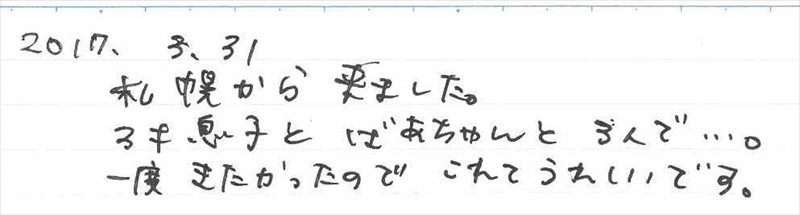 2017、 3、31
札幌から 来ました。
3才息子と ばあちゃんと 3人で…。
一度 きたかったので これてうれしいです。